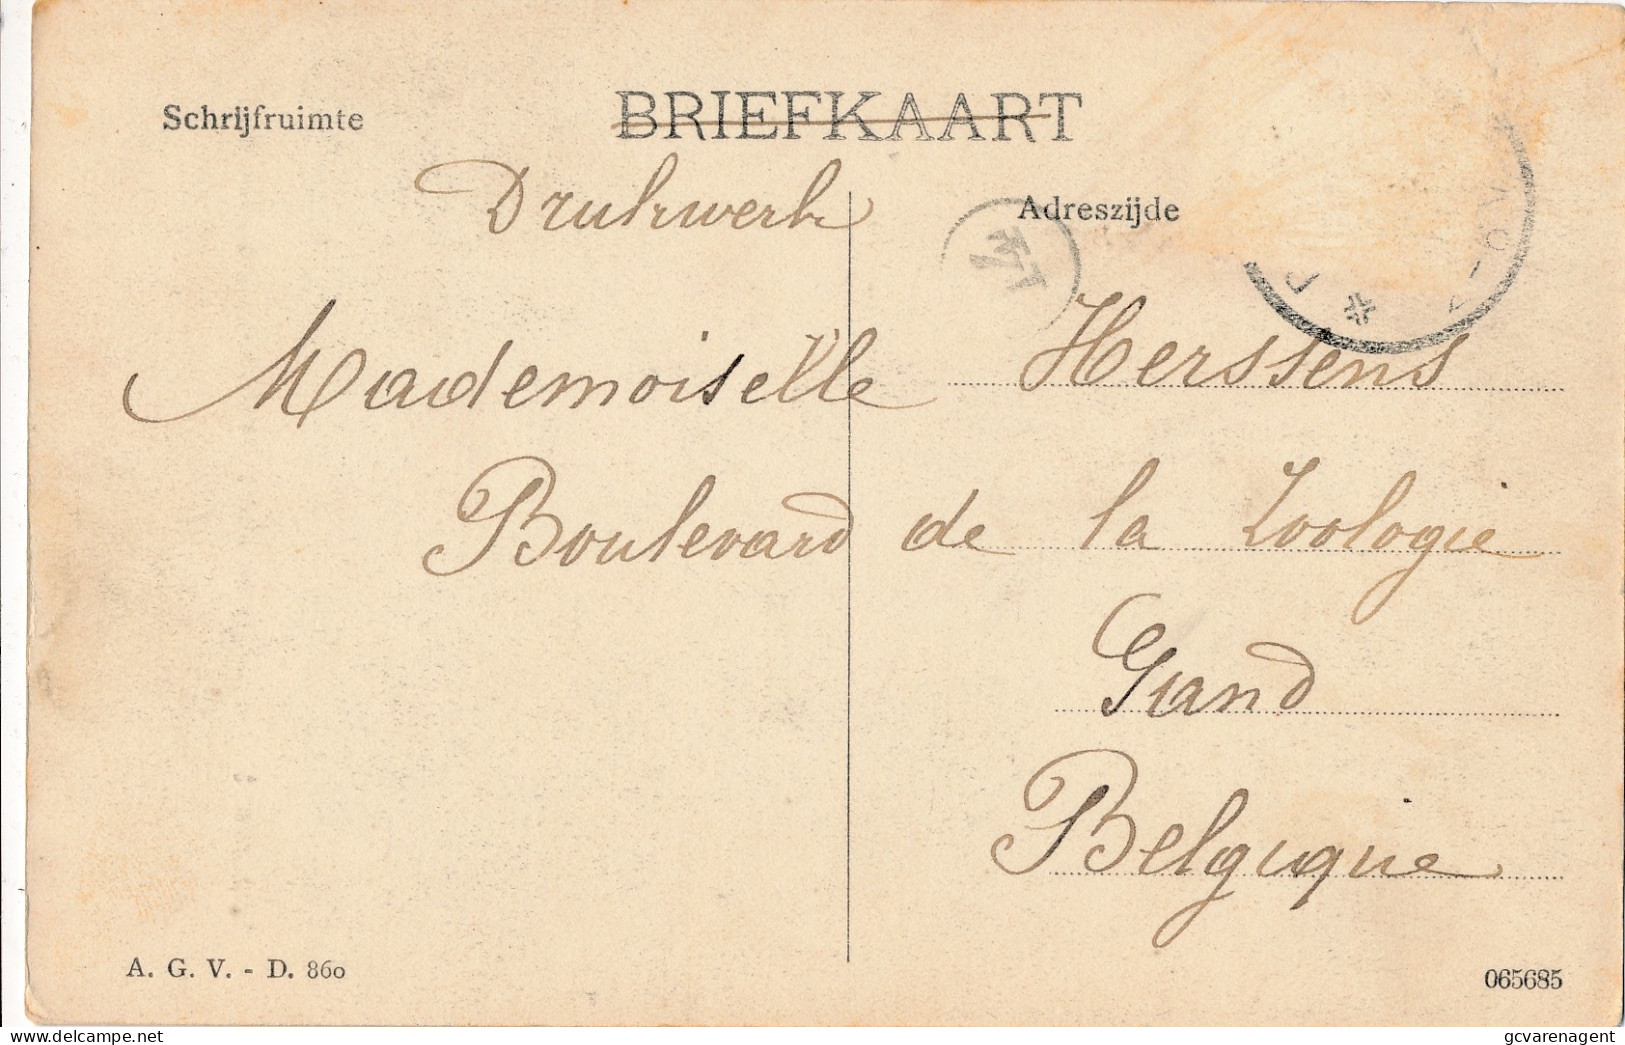 BRIEFKAART
Schrijfruimte
Drukwerk
Adreszijde
Mademoiselle Herssens
Boulevard de la Zoologie
Gand
Belgique
A. G. V. - D. 860
065685
delcampe.net
gcvarenagent